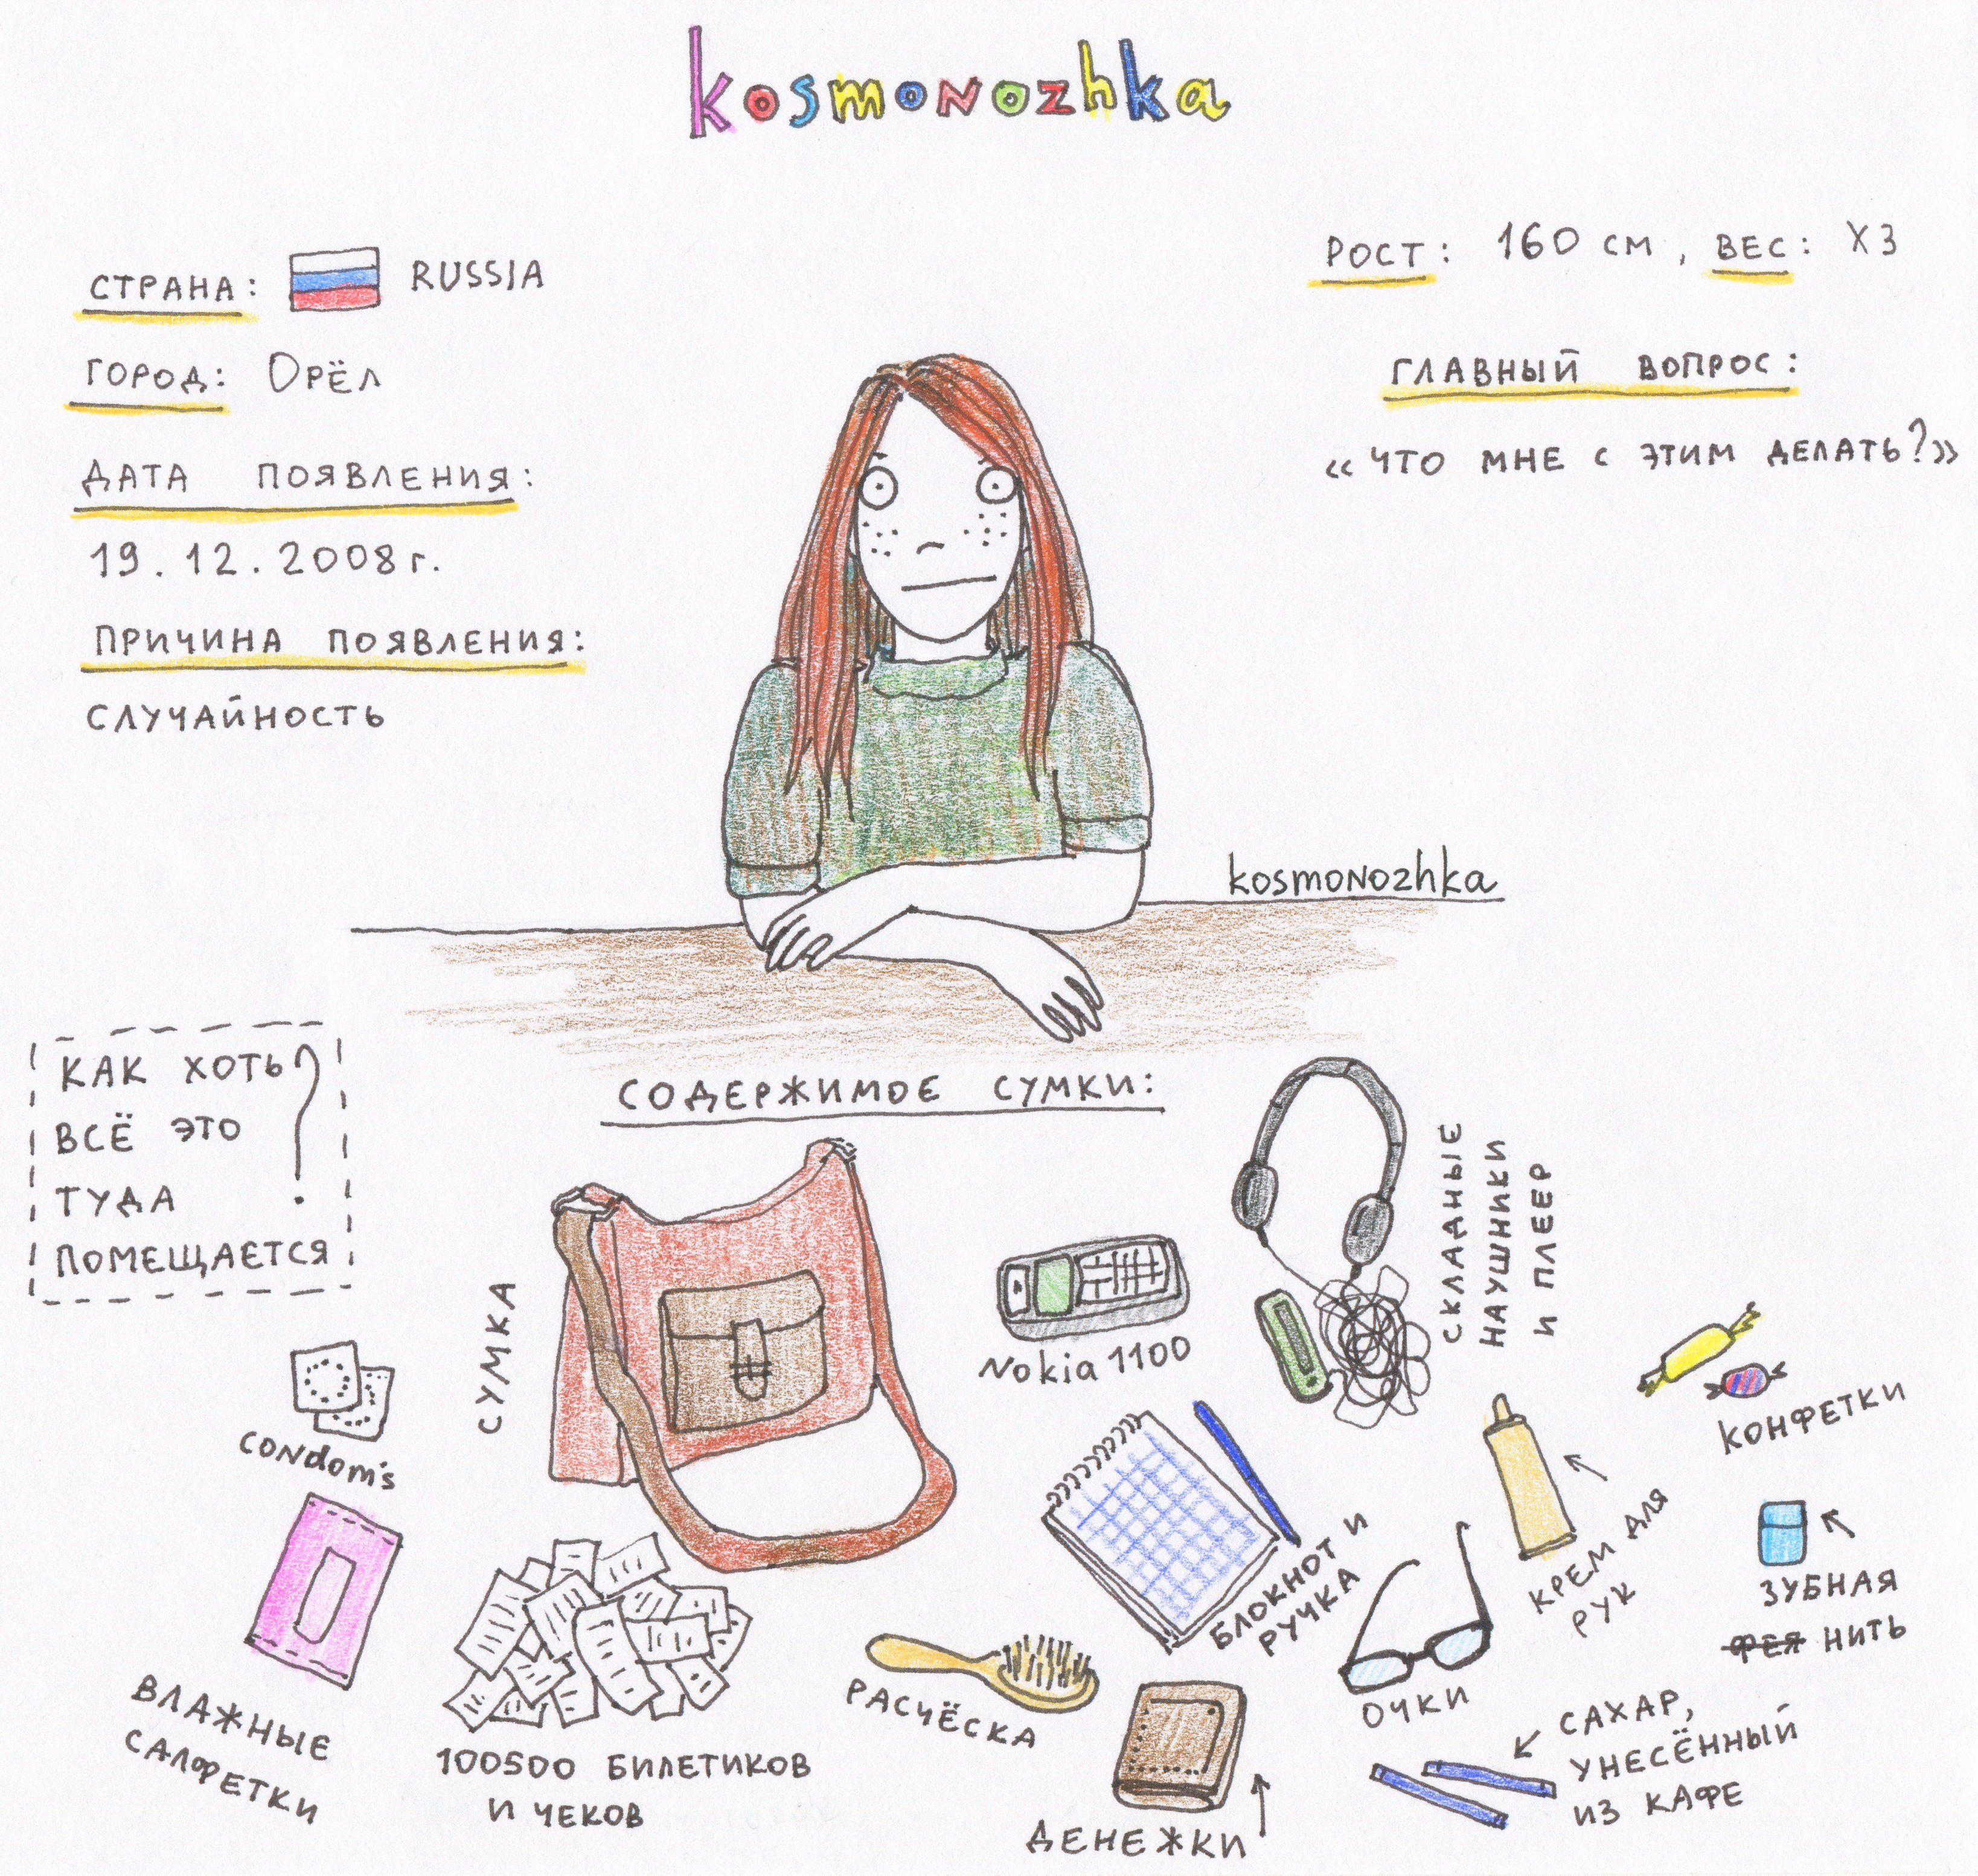 kosmonozhka
СТРАНА: RUSSIA
ГОРОД: ОРЁЛ
ДАТА ПОЯВЛЕНИЯ:
19.12.2008 г.
ПРИЧИНА ПОЯВЛЕНИЯ:
СЛУЧАЙНОСТЬ
РОСТ: 160 СМ, ВЕС: ХЗ
ГЛАВНЫЙ ВОПРОС:
«ЧТО МНЕ С ЭТИМ ДЕЛАТЬ?»
kosmonozhka
КАК ХОТЬ
ВСЁ ЭТО
ТУДА
ПОМЕЩАЕТСЯ?
СОДЕРЖИМОЕ СУМКИ:
СУМКА
Nokia 1100
СКЛАДНЫЕ
НАУШНИКИ
И ПЛЕЕР
КОНФЕТКИ
CONdom's
ВЛАЖНЫЕ
САЛФЕТКИ
100500 БИЛЕТИКОВ
И ЧЕКОВ
РАСЧЁСКА
БЛОКНОТ И
РУЧКА
КРЕМ ДЛЯ
РУК
ЗУБНАЯ
ФЕЯ НИТЬ
ОЧКИ
ДЕНЕЖКИ
САХАР,
УНЕСЁННЫЙ
ИЗ КАФЕ